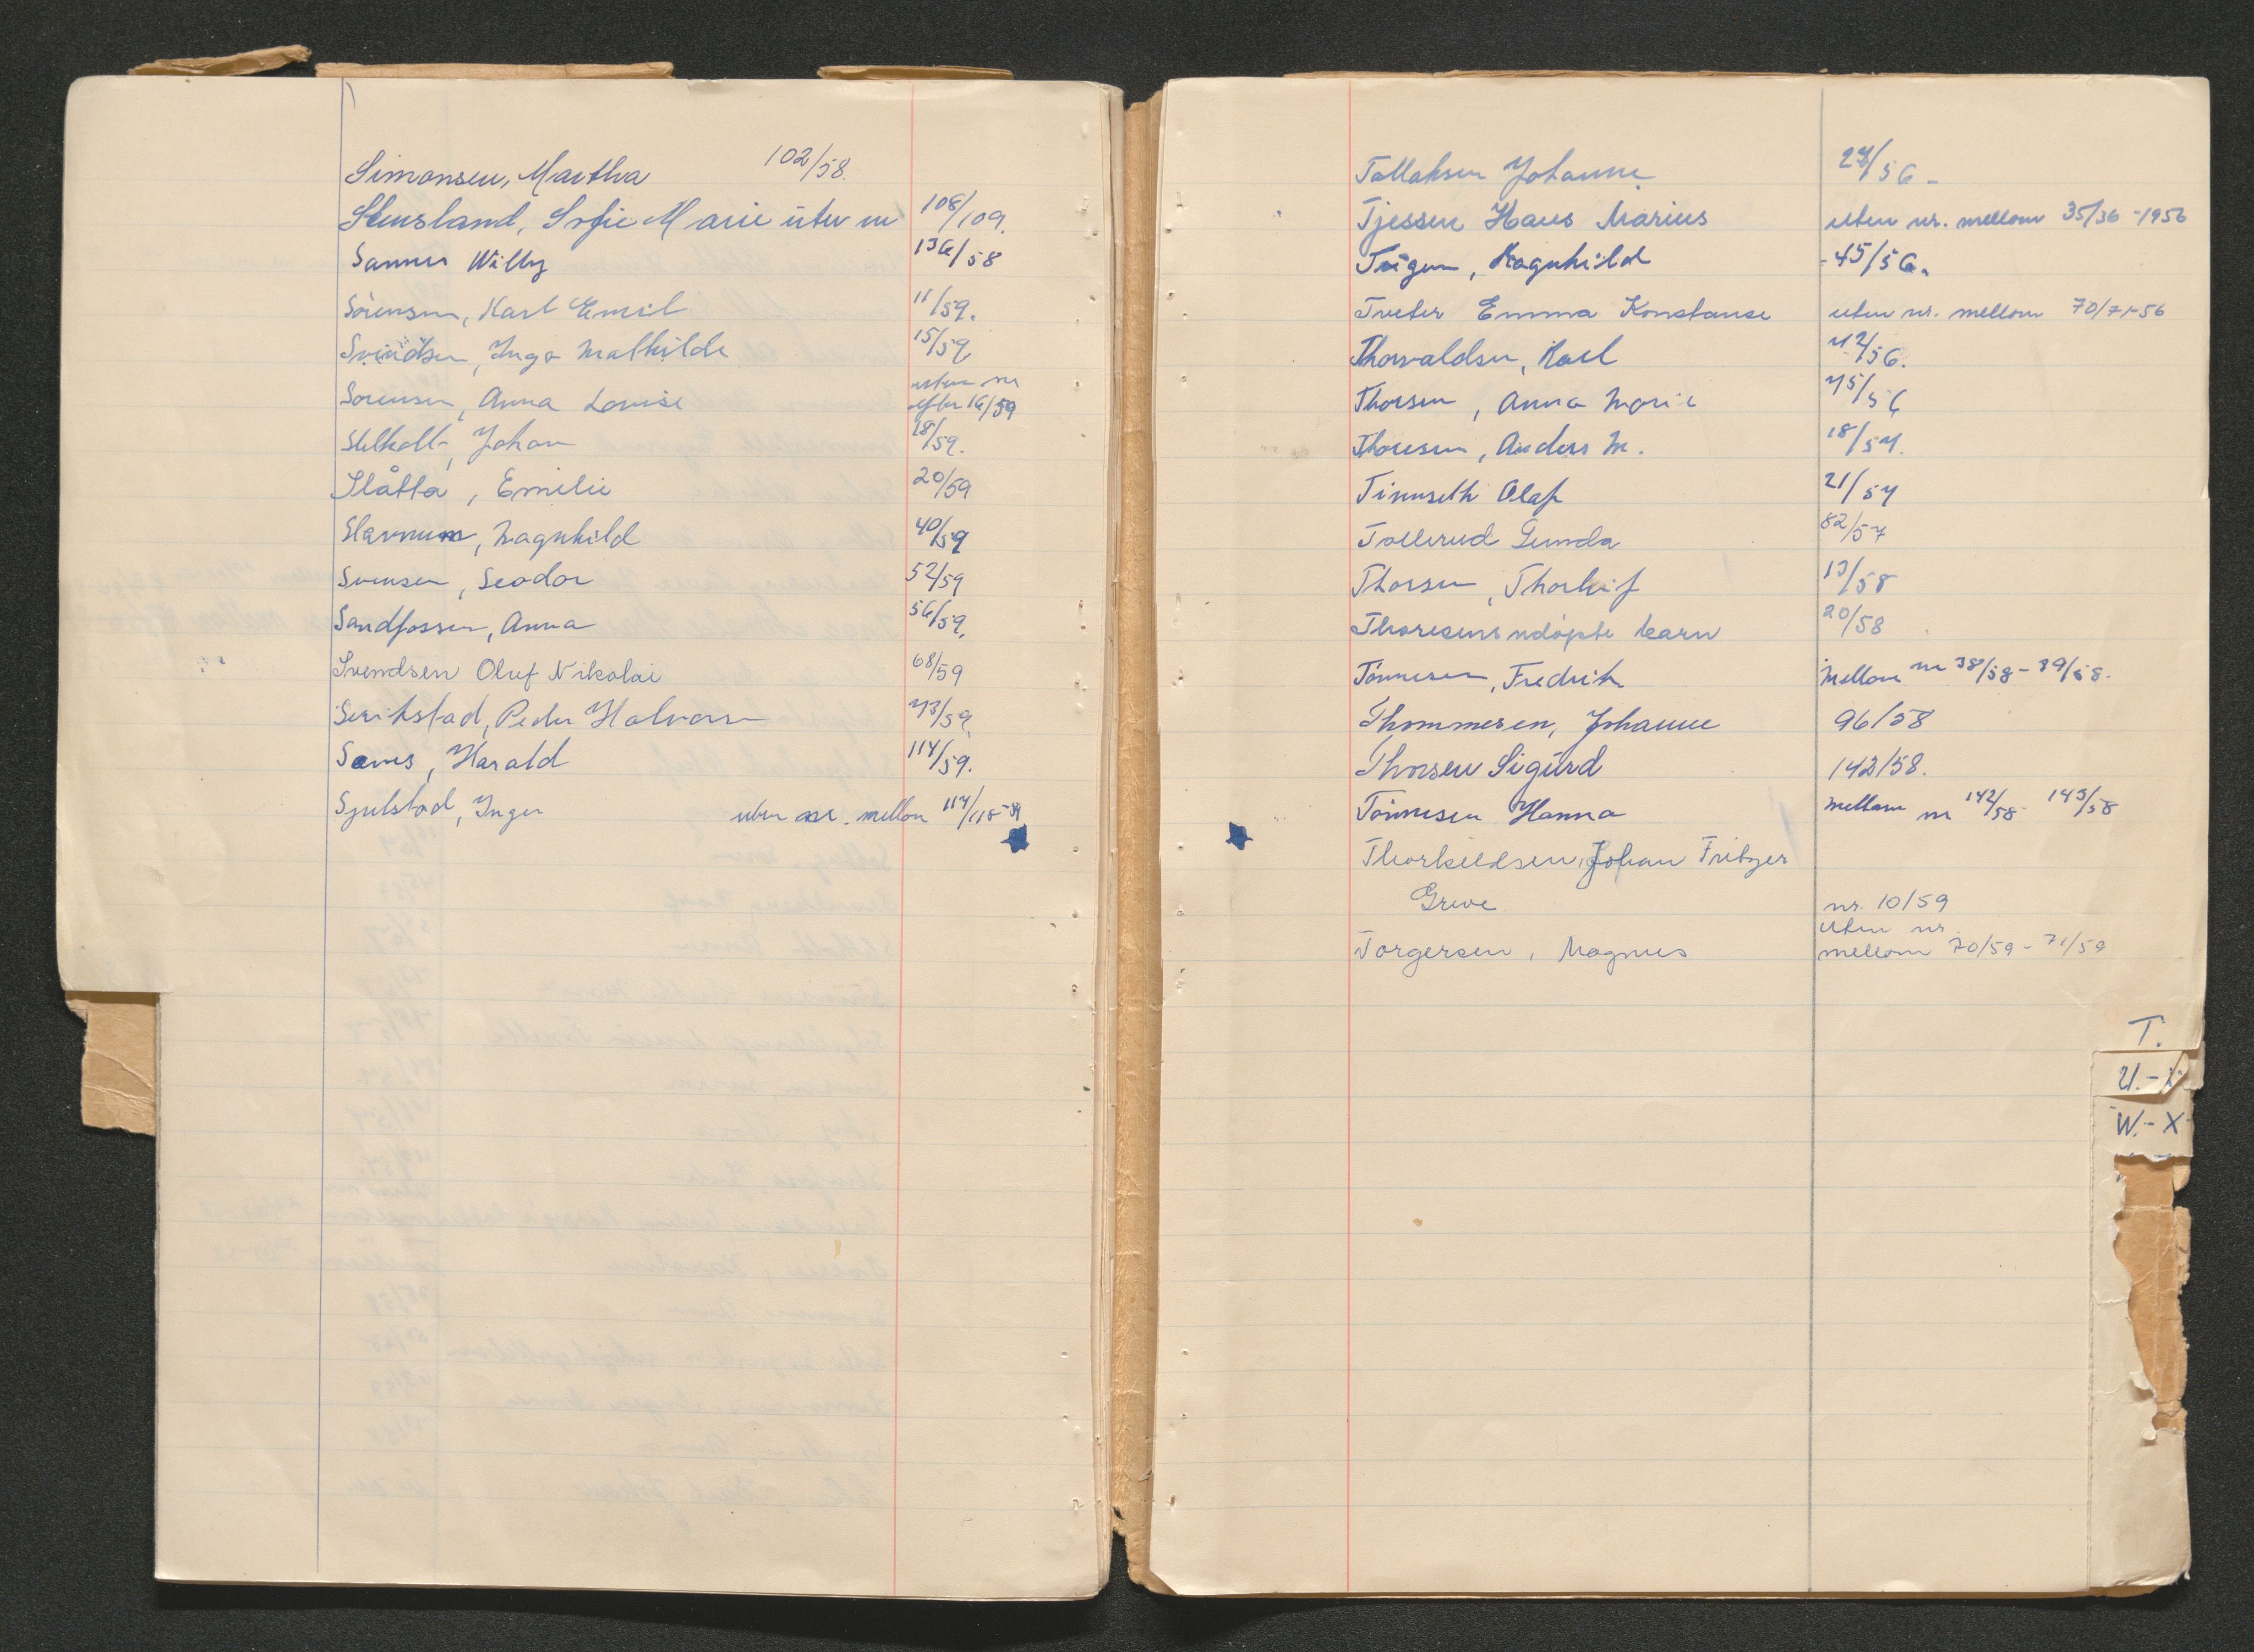 Simonsen, Martha 102/58.
Stensland, Sofie Marie uten nr 108/109.
Sannes Willy 136/58
Sörensen, Karl Emil 11/59.
Svendsen, Inga Mathilde 15/59
Sörensen, Anna Lovise uten nr efter 16/59
Johan 18/59.
Slåtta, Emilie 20/59
Ragnhild 40/59
Svensen, Teodor 52/59
Sandfossen, Anna 56/59.
Svendsen Oluf Nikolai 68/59
Peder Halvorsen 73/59.
Harald 114/59.
Inger uten nr. mellom 114/115-59
Tallaksen Johanne 27/56-
Tjessen Hans Marius uten nr. mellom 35/36-1956
Ragnhild 45/56.
Tveter Emma Konstanse uten nr. mellom 70/71-56
Thorvaldsen, Karl 72/56.
Thorsen, Anna Marie 75/56
Thoresen, Anders M. 18/57.
Olaf 21/57
Tollerud Gunda 82/57
Thorsen, Thorleif 13/58
Thoresens udöpte barn 20/58
Tönnesen, Fredrik mellom nr 38/58-39/58.
Thommesen, Johanne 96/58
Thorsen Sigurd 142/58.
Tönnesen Hanna mellom nr 142/58 143/58
Thorkildsen, Johan Fritzer
Greve nr. 10/59
uten nr.
Torgersen, Magnus mellom 70/59-71/59
T.
U.-V
W.-X